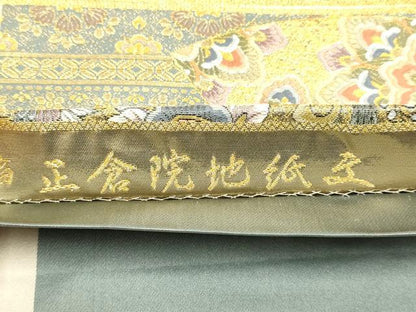 正倉院地紙文